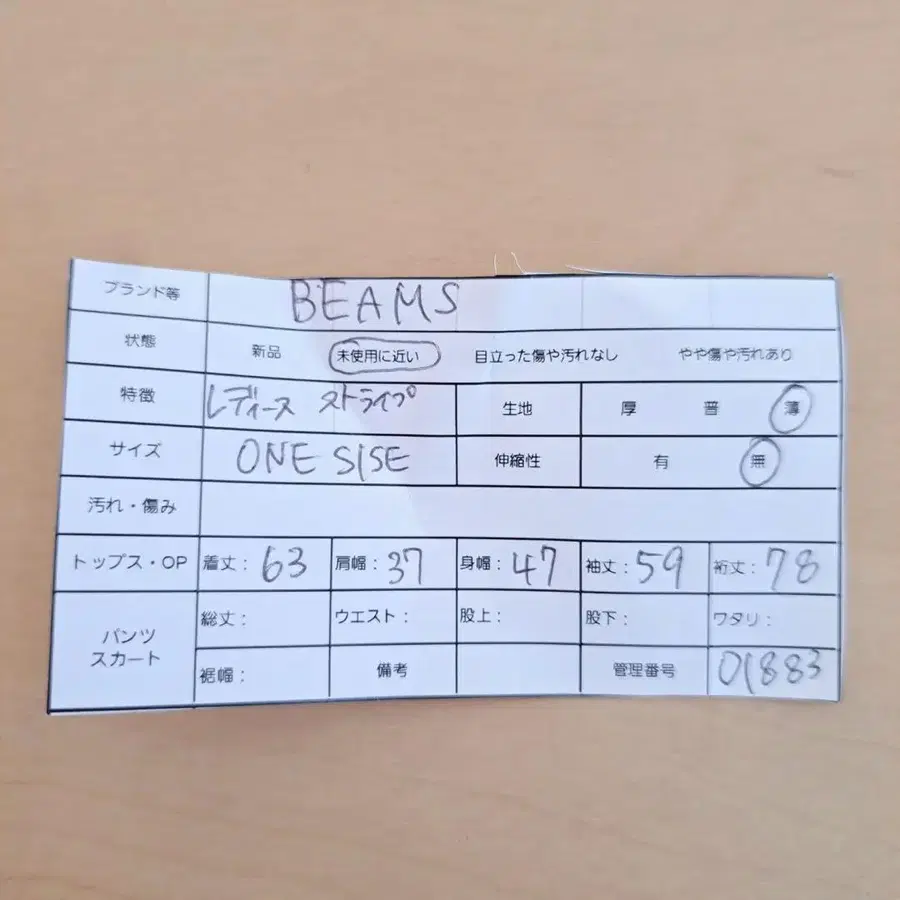 ブランド等 BEAMS
状態 新品 未使用に近い 目立った傷や汚れなし やや傷や汚れあり
特徴 レディース ストライプ 生地 厚 普 薄
サイズ ONE SISE 伸縮性 有 無
汚れ・傷み
トップス・OP 着丈：63 肩幅：37 身幅：47 袖丈：59 裄丈：78
パンツ スカート 総丈： ウエスト： 股上： 股下： ワタリ：
裾幅： 備考 管理番号 01883